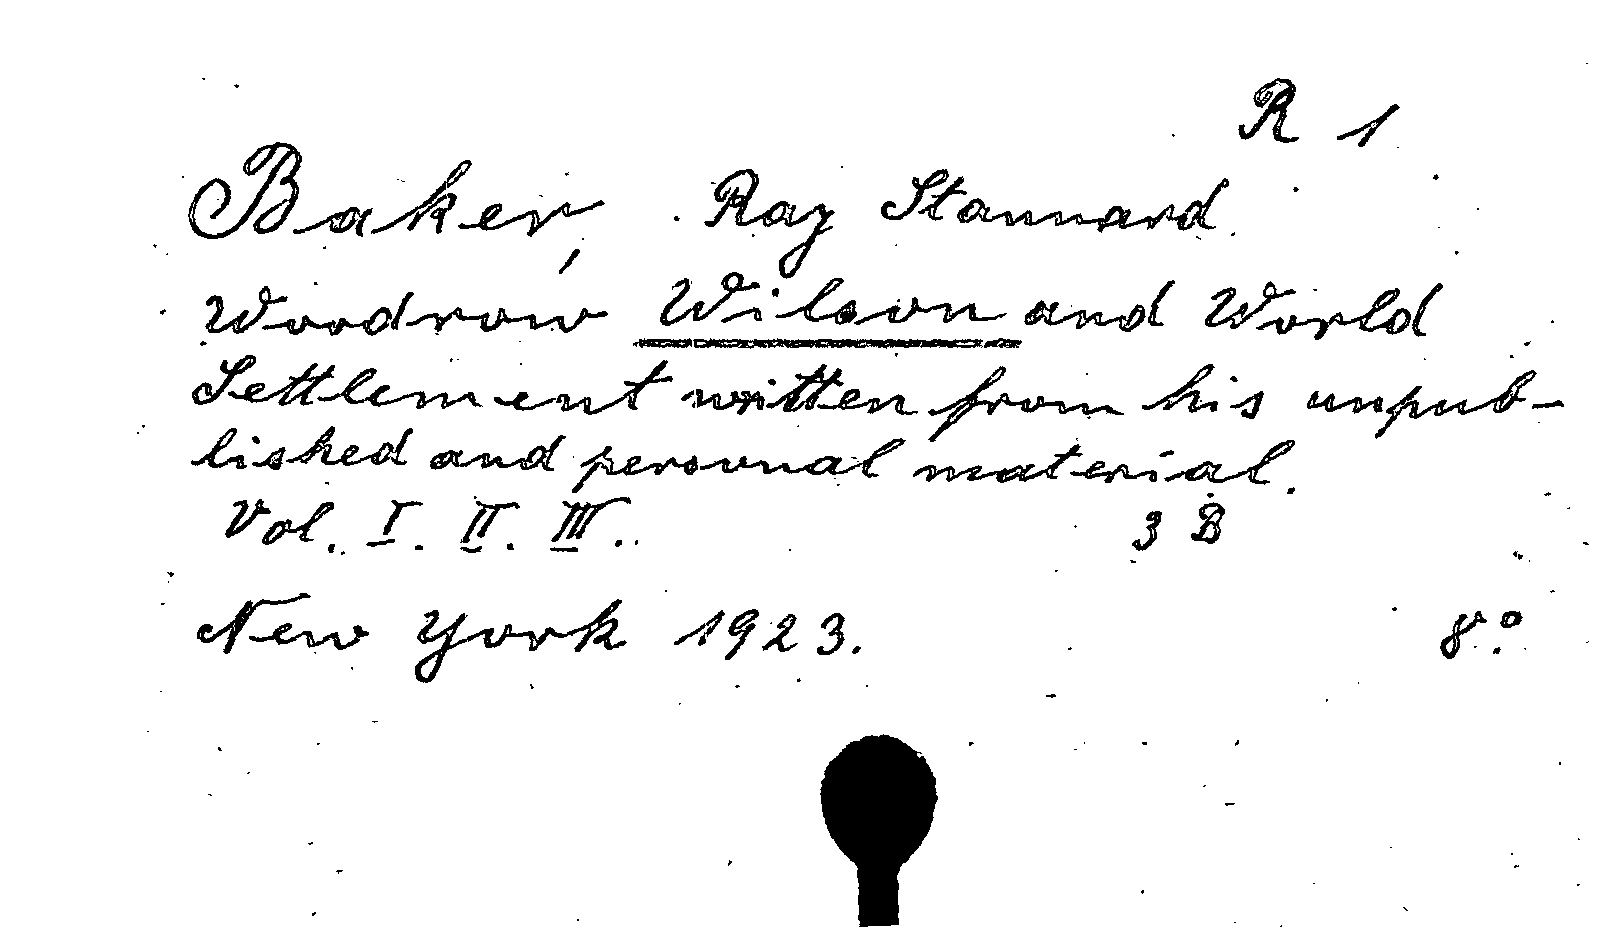 R 1
Baker, Ray Stannard
Woodrow Wilson and World
Settlement written from his unpub-
lished and personal material.
Vol. I. II. III. 3 B
New York 1923. 8°.